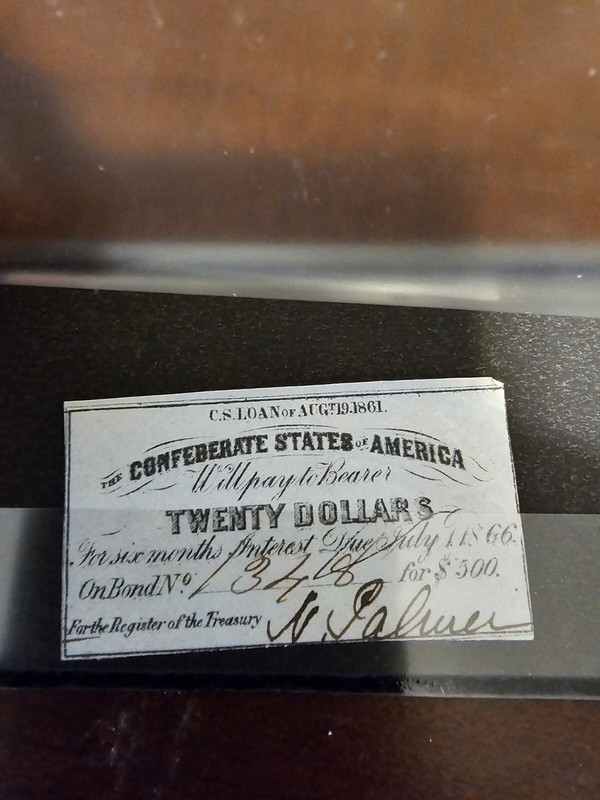 C.S. LOAN OF AUGT. 19. 1861.
THE CONFEDERATE STATES OF AMERICA
Will pay to Bearer
TWENTY DOLLARS
For six months Interest Due July 1 1866.
On Bond No. 1348 for $500.
For the Register of the Treasury N. Palmer